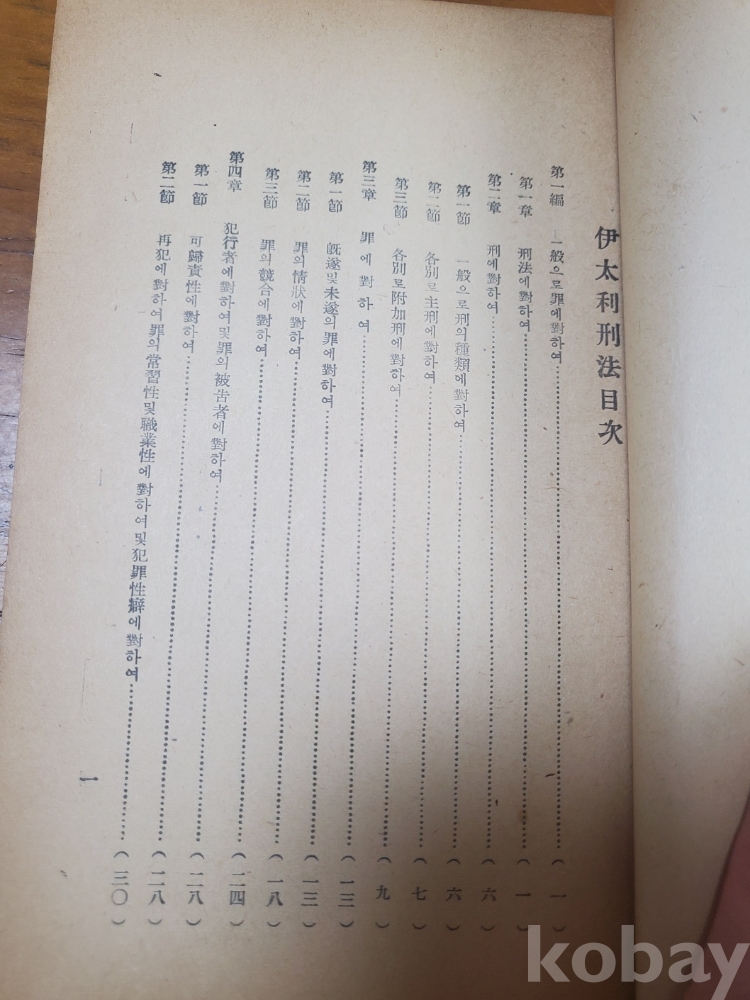 伊太利刑法目次
第一編 一般으로罪에對하여……(一)
第一章 刑法에對하여……(一)
第二章 刑에對하여……(六)
第一節 一般으로刑의種類에對하여……(六)
第二節 各別로主刑에對하여……(七)
第三節 各別로附加刑에對하여……(九)
第三章 罪에對하여……(一三)
第一節 旣遂및未遂의罪에對하여……(一三)
第二節 罪의情狀에對하여……(一八)
第三節 罪의競合에對하여……(二四)
第四章 犯行者에對하여및罪의被告者에對하여……(二八)
第一節 可歸責性에對하여……(二八)
第二節 再犯에對하여罪의常習性및職業性에對하여및犯罪性癖에對하여……(三〇)
一
kobay